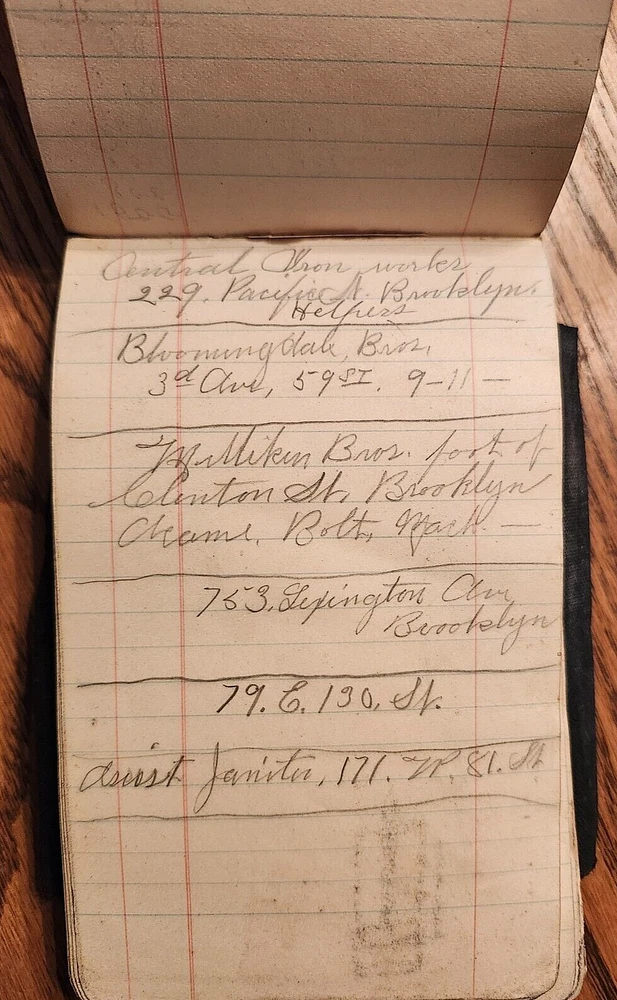 Central Iron works
229. Pacific St. Brooklyn.
Helpers
Bloomingdale, Bros.
3d Ave, 59 ST. 9-11 —
Milliken Bros. foot of
Clinton St. Brooklyn
Bolt, Mach. —
753. Lexington Ave
Brooklyn
79. E. 130. St.
Janitor, 171. W. 81. St